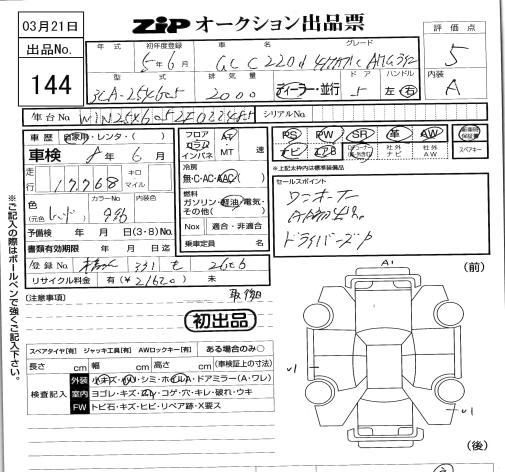 03月21日
ZIP オークション出品票
出品No.
144
年式 初年度登録 車名 グレード
5年6月 GLC 220d 4マチック AMG
評価点
5
型式 排気量 ドア ハンドル
3CA- 2000 ディーラー・並行 5 左 右
内装
A
車台No. シリアルNo.
車歴 自家用・レンタ・( )
車検 8年6月
走行 17768 キロ マイル
色 (元色) レッド カラーNo. 996 内装色
予備検 年 月 日(3・8)
書類有効期限 年 月 日迄
登録No. 331 も
リサイクル料金 有(¥21620) 未
フロア コラム インパネ
AT MT 速
冷房
無・C・AC・AAC
燃料
ガソリン・軽油・電気・その他( )
Nox 適合・非適合
乗車定員 名
PS PW SR 革 AW
ナビ エアB 社外ナビ 社外AW スペアキー
※上記太枠内は標準装備品
セールスポイント
ワンオーナー
ドライバーズP
[注意事項]
初出品
スペアタイヤ[有] ジャッキ工具[有] AWロックキー[有] ある場合のみ○
長さ cm 幅 cm 高さ cm (車検証上の寸法)
検査記入
外装 小キズ・ ・シミ・ホイルA・ドアミラー(A・ワレ)
室内 ヨゴレ・キズ・ ・コゲ・穴・キレ・破れ・ウキ
FW トビ石・キズ・ヒビ・リペア跡・X要ス
※ご記入の際はボールペンで強くご記入下さい。
A1
(前)
U1
U1
(後)